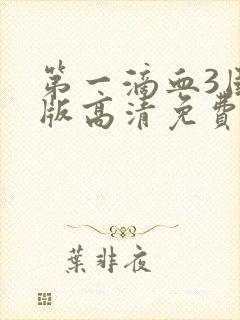 第一滴血3
版高清免費
葉非夜